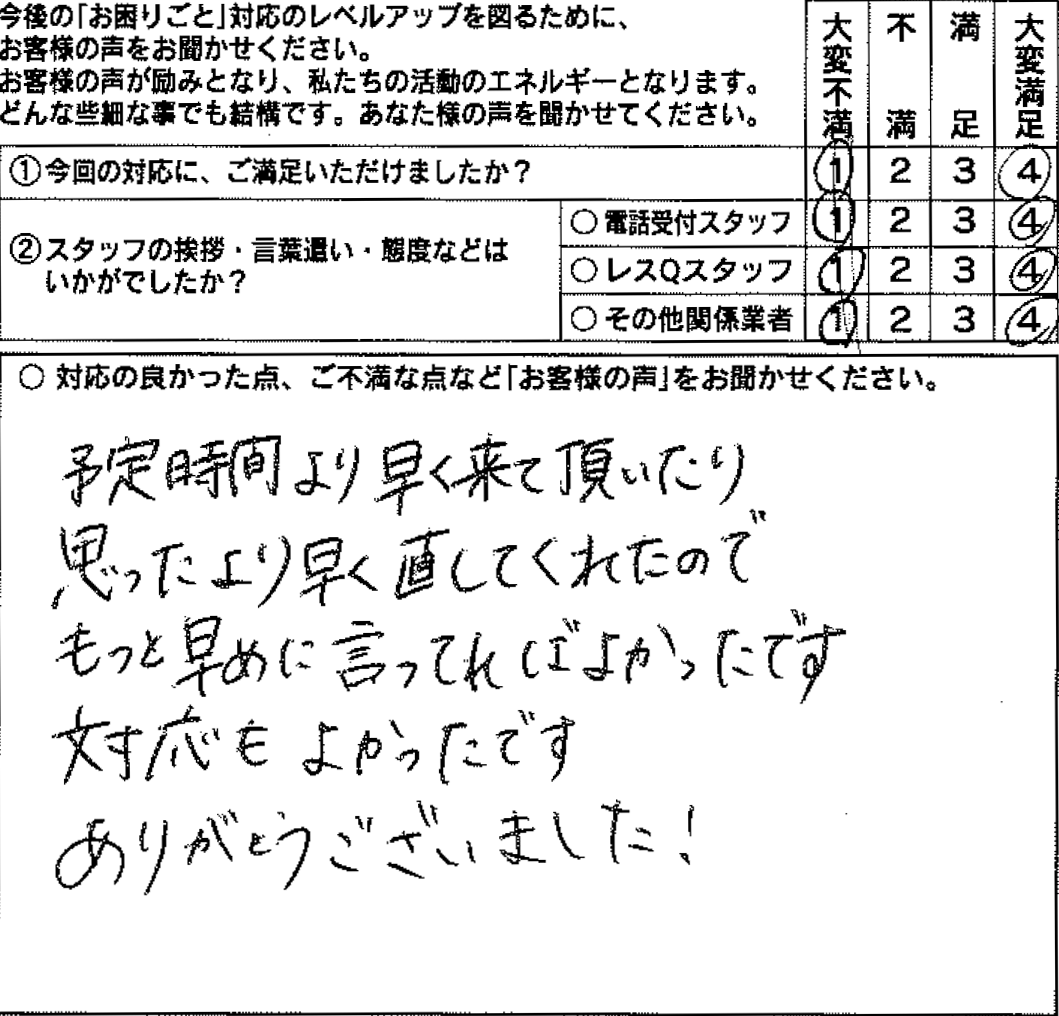 今後の「お困りごと」対応のレベルアップを図るために、
お客様の声をお聞かせください。
お客様の声が励みとなり、私たちの活動のエネルギーとなります。
どんな些細な事でも結構です。あなた様の声を聞かせてください。
大変不満 不満 満足 大変満足
①今回の対応に、ご満足いただけましたか? 1 2 3 4
②スタッフの挨拶・言葉遣い・態度などは
いかがでしたか?
○ 電話受付スタッフ 1 2 3 4
○ レスQスタッフ 1 2 3 4
○ その他関係業者 1 2 3 4
○ 対応の良かった点、ご不満な点など「お客様の声」をお聞かせください。
予定時間より早く来て頂いたり
思ったより早く直してくれたので
もっと早めに言ってればよかったです
対応もよかったです
ありがとうございました!